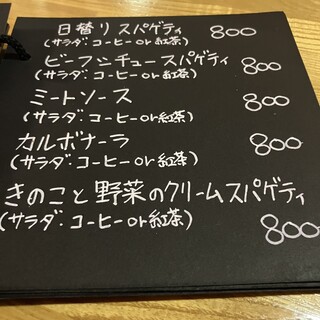 日替りスパゲティ 800
(サラダ・コーヒーor紅茶)
ビーフシチュースパゲティ 800
(サラダ・コーヒーor紅茶)
ミートソース 800
(サラダ・コーヒーor紅茶)
カルボナーラ 800
(サラダ・コーヒーor紅茶)
きのこと野菜のクリームスパゲティ
(サラダ・コーヒーor紅茶) 800